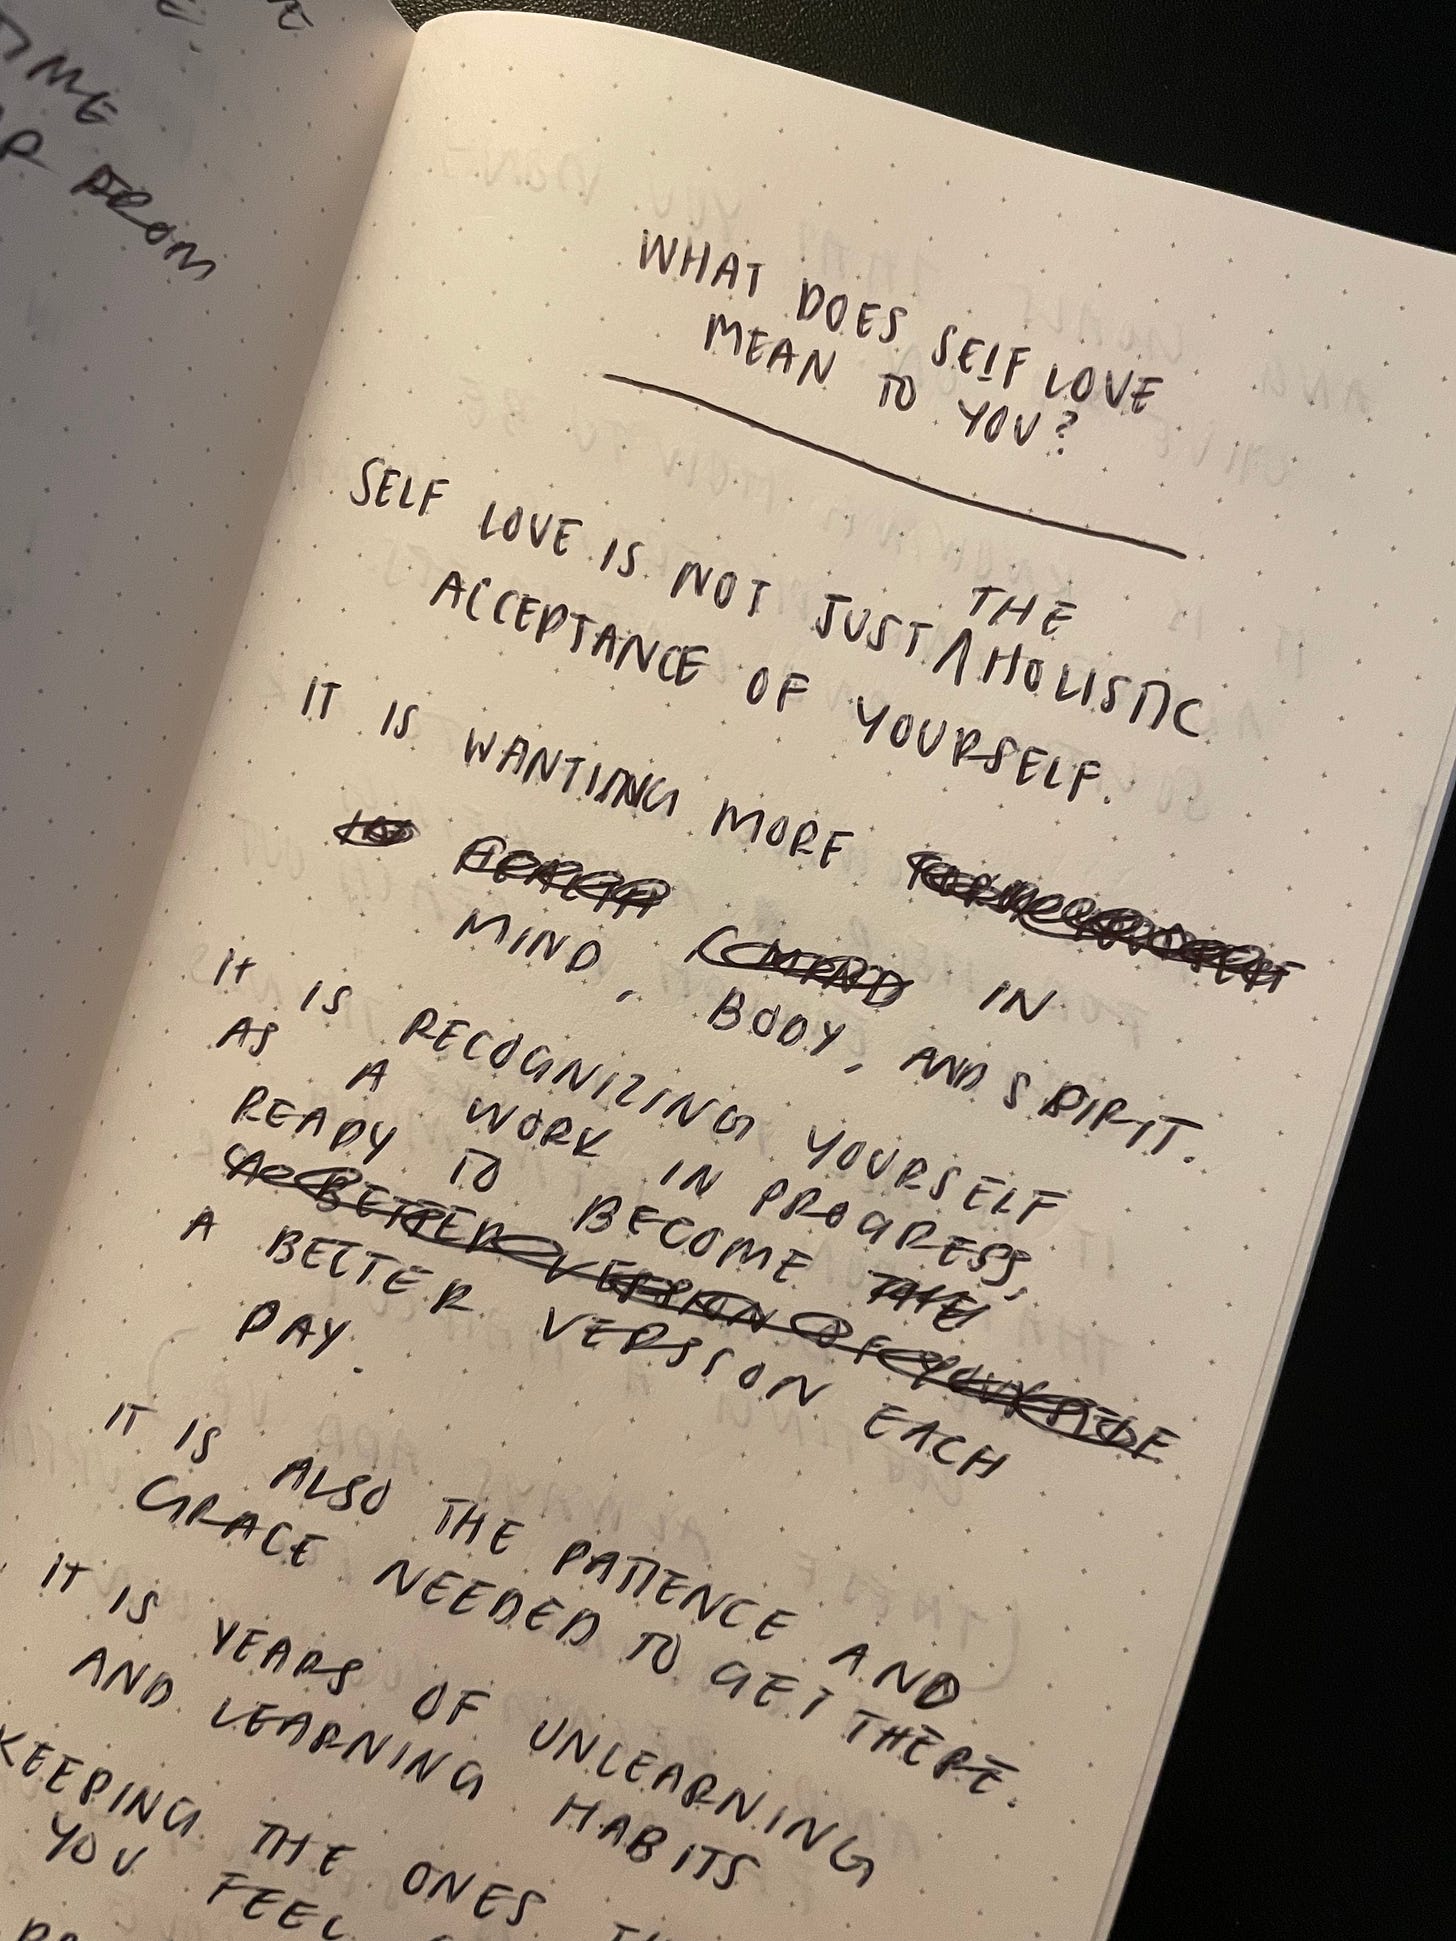 TIME
FROM
WHAT DOES SELF LOVE
MEAN TO YOU?
THE
SELF LOVE IS NOT JUST ^ HOLISTIC
ACCEPTANCE OF YOURSELF.
IT IS WANTING MORE
HEALTH (MIND IN
MIND, BODY, AND SPIRIT.
IT IS RECOGNIZING YOURSELF
AS A WORK IN PROGRESS,
READY TO BECOME THE
A BETTER VERSION OF YOURSELF
A BETTER VERSION EACH
DAY.
IT IS ALSO THE PATIENCE AND
GRACE NEEDED TO GET THERE.
IT IS YEARS OF UNLEARNING
AND LEARNING HABITS
KEEPING THE ONES
YOU FEEL